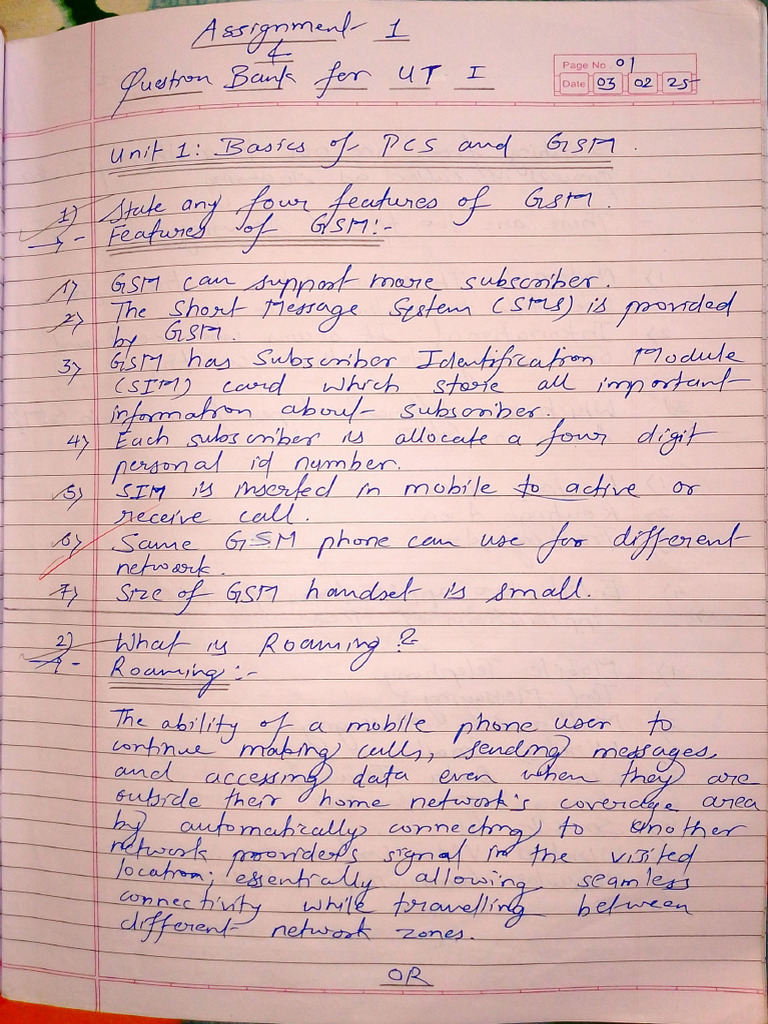 Assignment 1
&
Question Bank for UT I
Page No. 01
Date 03 02 25
Unit 1: Basics of PCS and GSM.
1) State any four features of GSM.
→- Features of GSM:-
1) GSM can support more subscriber.
2) The Short Message System (SMS) is provided
by GSM.
3) GSM has Subscriber Identification Module
(SIM) card which store all important
information about subscriber.
4) Each subscriber is allocate a four digit
personal id number.
5) SIM is inserted in mobile to active or
receive call.
6) Same GSM phone can use for different
network.
7) Size of GSM handset is small.
2) What is Roaming?
→- Roaming:-
The ability of a mobile phone user to
continue making calls, sending messages,
and accessing data even when they are
outside their home network's coverage area
by automatically connecting to another
network provider's signal in the visited
location; essentially allowing seamless
connectivity while travelling between
different network zones.
OR